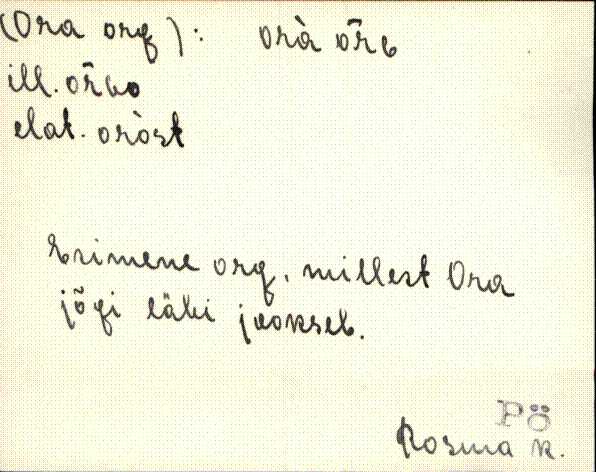 (Ora org): orà or̄G
ill. or̄Go
elat. oròst
Esimene org, millest Ora
jõgi läbi jookseb.
Pö
Rosma k.